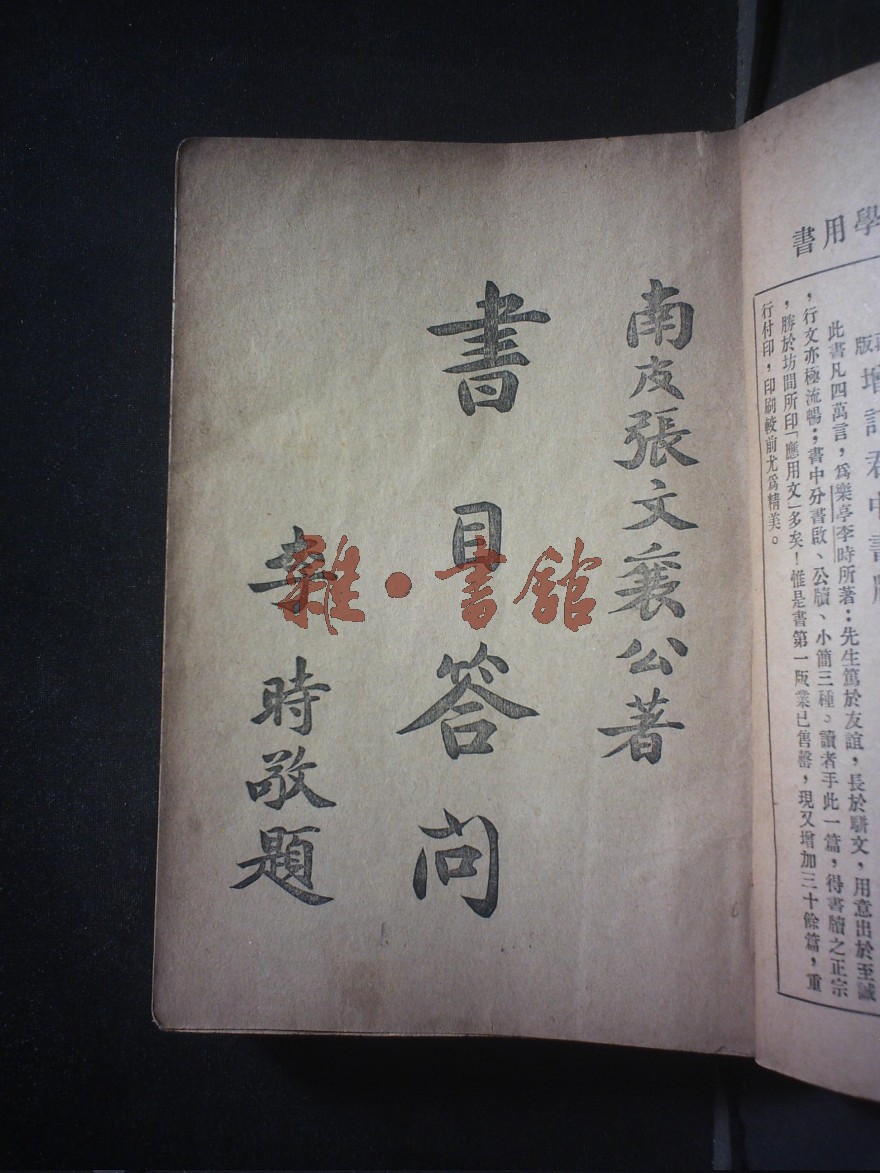 學用書
版增訂君中書牘
此書凡四萬言，爲樂亭李時所著：先生篤於友誼，長於駢文，用意出於至誠
，行文亦極流暢；書中分書啟、公牘、小簡三種。讀者手此一篇，得書牘之正宗
，勝於坊間所印「應用文」多矣！惟是書第一版業已售罄，現又增加三十餘篇，重
行付印，印刷較前尤爲精美。
南皮張文襄公著
書目答問
李時敬題
雜·書館